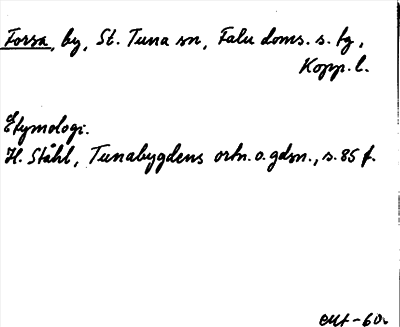 Forsa, by, St. Tuna sn, Falu doms. s. tg,
Kopp. l.
Etymologi.
H. Ståhl, Tunabygdens ortn. o. gdsn., s. 85 f.
-60.